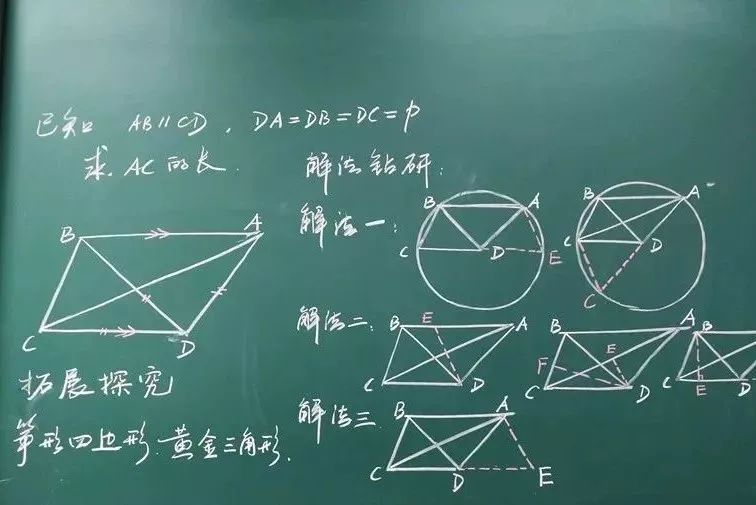 已知 AB∥CD, DA=DB=DC=p
求 AC 的长.
解法钻研:
B A C D
解法一:
B A C D E
B A C D C
解法二:
B E A C D
B A F E C D
B C E
解法三
B A C D E
拓展探究
筝形四边形. 黄金三角形.